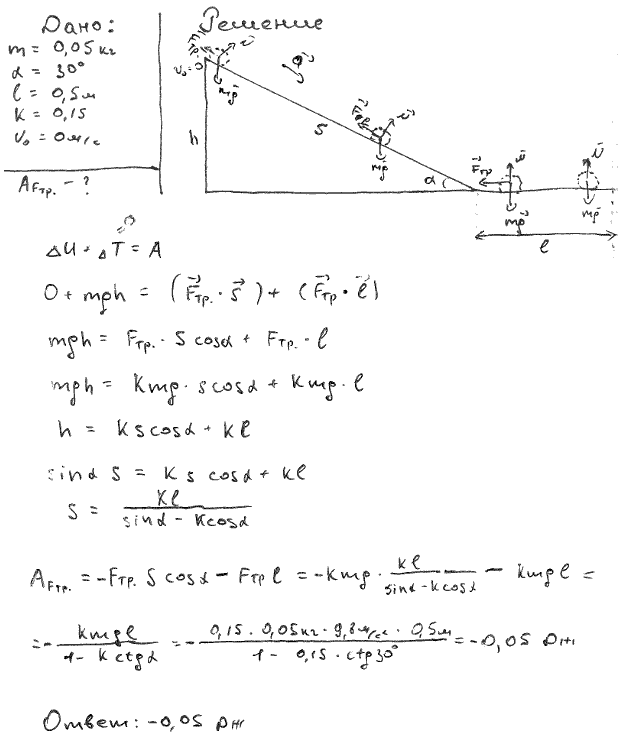 Дано:
m = 0,05 кг
α = 30°
l = 0,5 м
k = 0,15
v₀ = 0 м/с
A_Fтр. - ?
Решение
v₀ = 0
h
S
α
F⃗тр
mg⃗
mg⃗
mg⃗
l
ΔU + ΔT = A
0 + mgh = (F⃗тр. · s⃗) + (F⃗тр · l⃗)
mgh = Fтр. · S cosα + Fтр. · l
mgh = kmg · s cosα + kmg · l
h = k s cosα + kl
sinα s = k s cosα + kl
S = kl / (sinα - k cosα)
A_Fтр. = -Fтр. S cosα - Fтр l = -kmg · kl / (sinα - k cosα) - kmg l =
= - kmgl / (1 - k ctgα) = - 0,15 · 0,05кг · 9,8м/с² · 0,5м / (1 - 0,15 · ctg30°) = -0,05 Дж
Ответ: -0,05 Дж